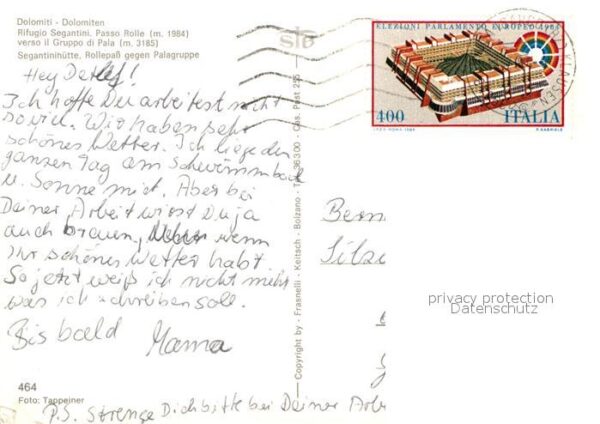 Dolomiti - Dolomiten
Rifugio Segantini. Passo Rolle (m. 1984)
verso il Gruppo di Pala (m. 3185)
Segantinihütte, Rollepaß gegen Palagruppe
Hey Detlef!
Ich hoffe Du arbeitest nicht
so viel. Wir haben sehr
schönes Wetter. Ich liege den
ganzen Tag am Schwimmbad
u. Sonne mich. Aber bei
Deiner Arbeit wirst Du ja
auch braun, wenn
Ihr schönes Wetter habt.
So jetzt weiß ich nicht mehr
was ich schreiben soll.
Bis bald Mama
464
Foto: Tappeiner
P.S. Strenge Dich bitte bei Deiner Arbe
Copyright by - Frasnelli - Keitsch - Bolzano - Tel. 36300 - Cas. Post 255
ELEZIONI PARLAMENTO EUROPEO 1984
400 ITALIA
KLAUSEN
Bern
privacy protection
Datenschutz